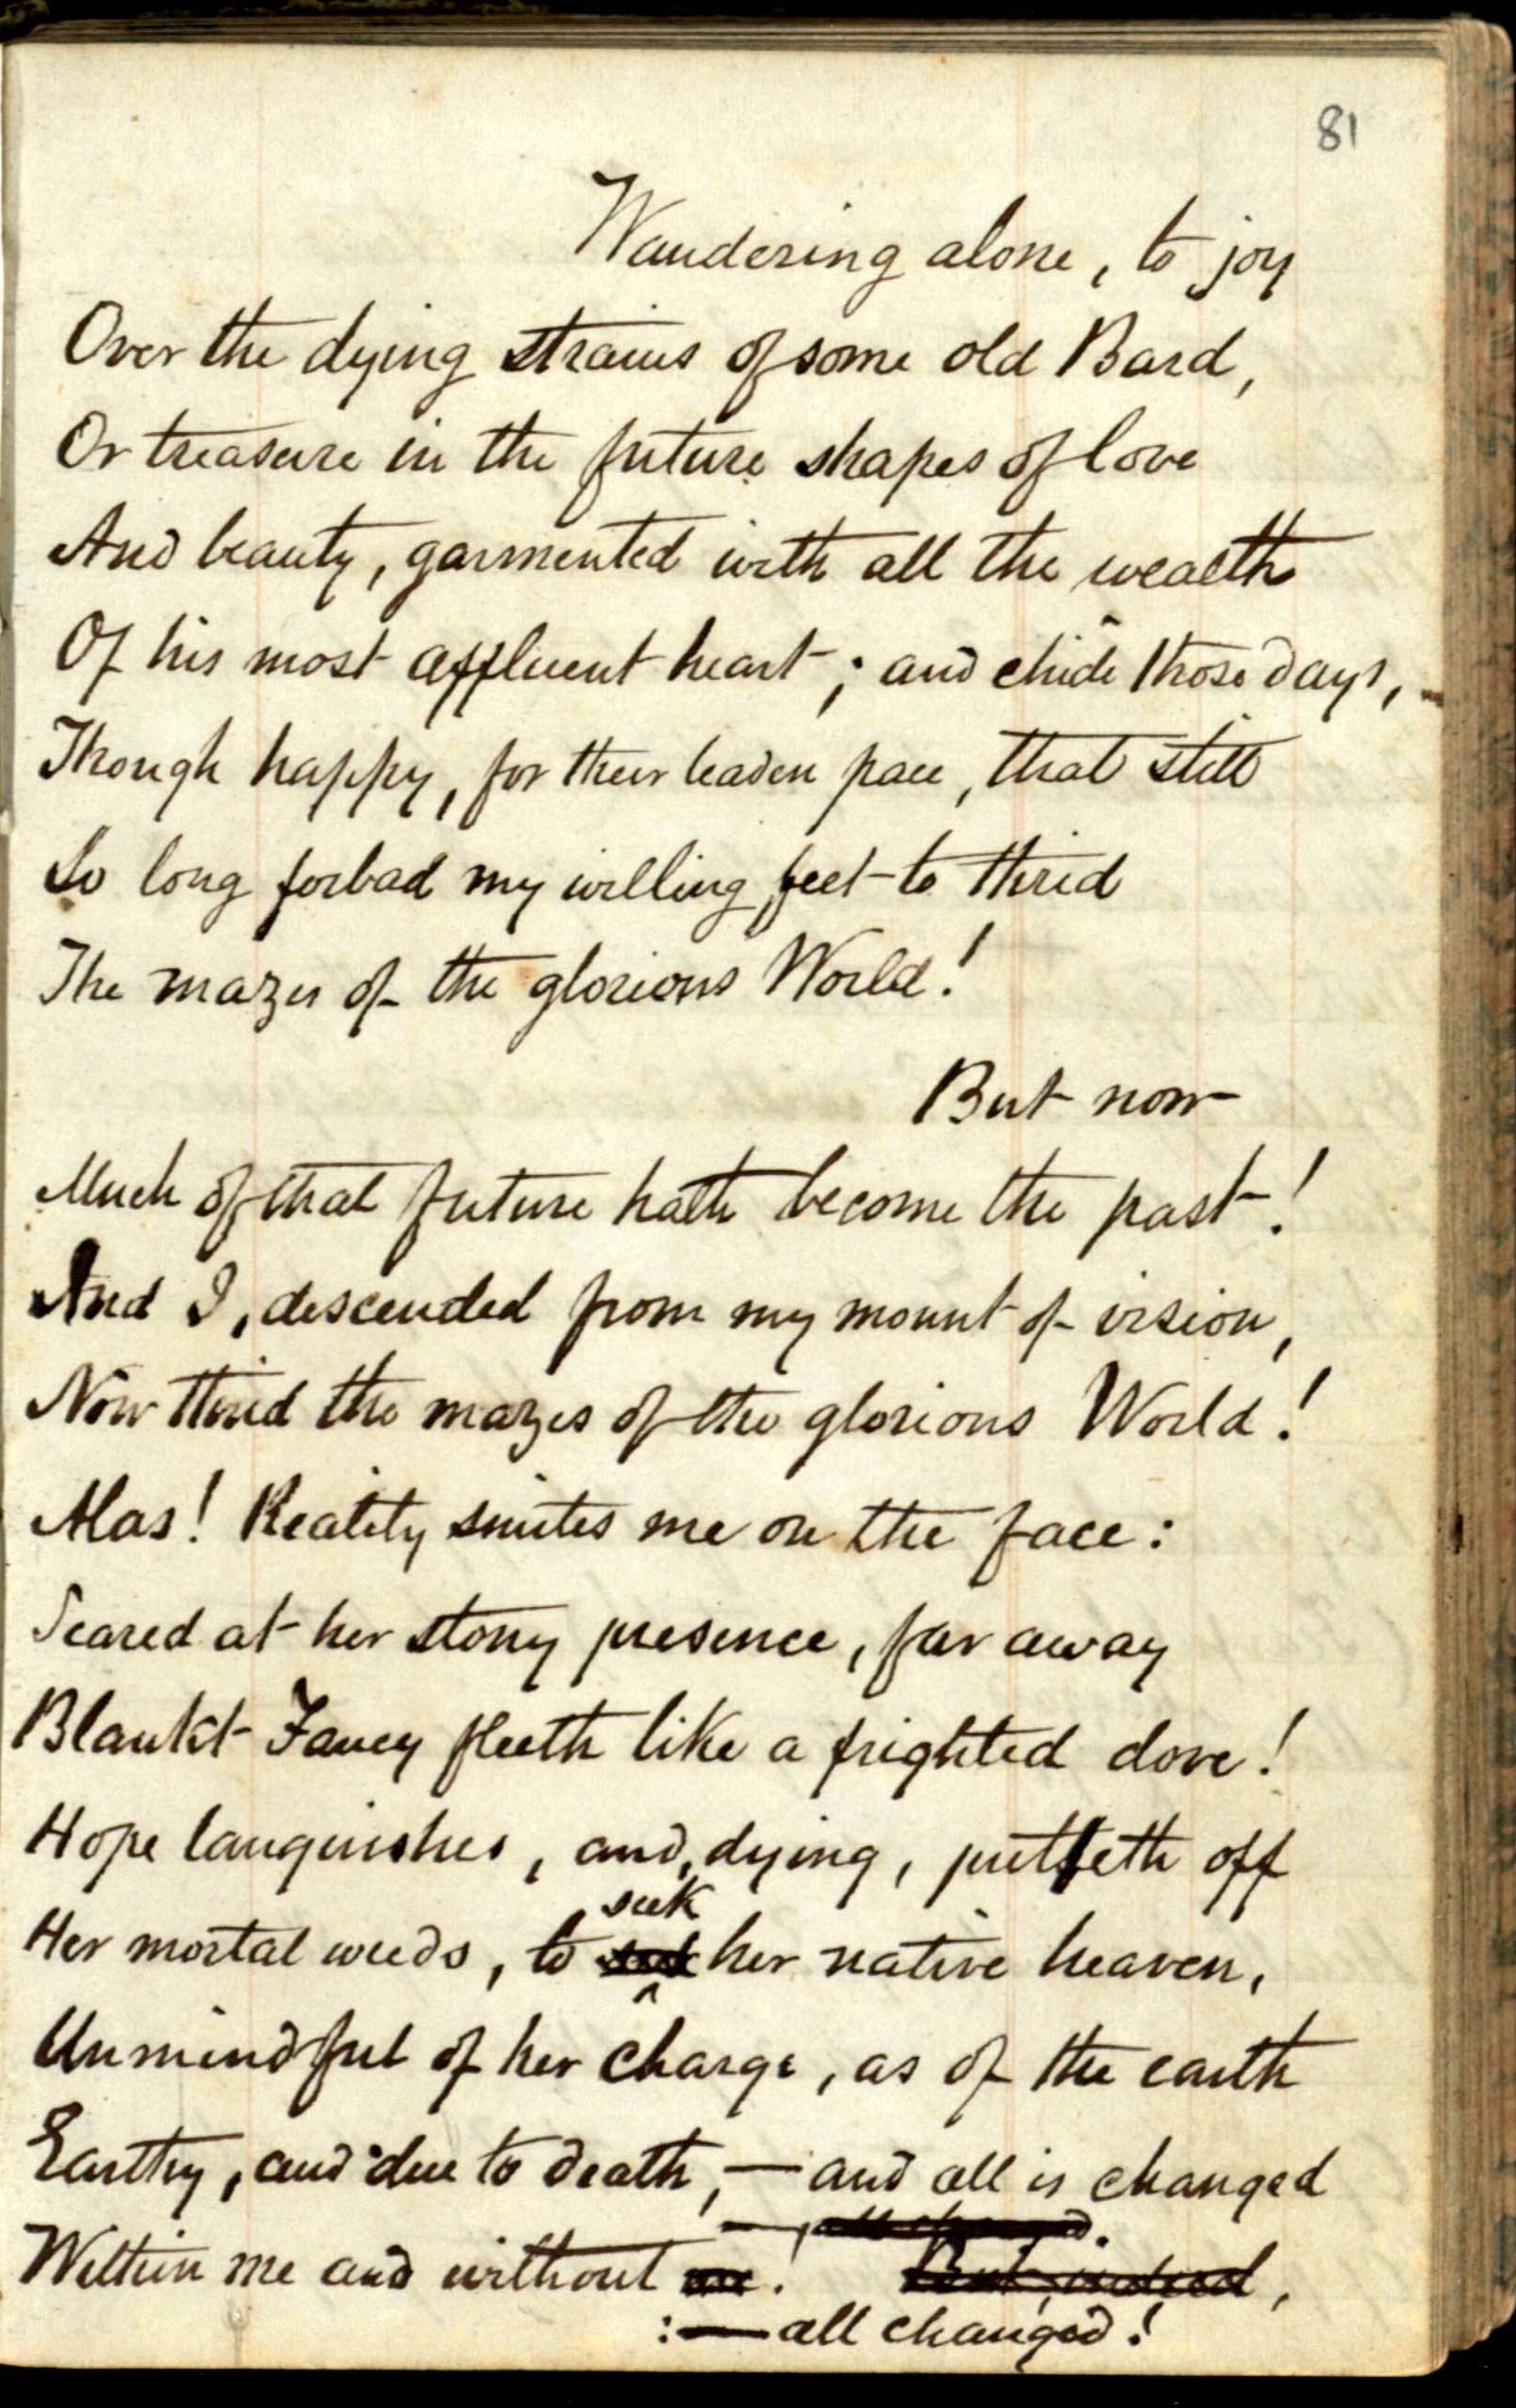 81
Wandering alone, to joy
Over the dying strains of some old Bard,
Or treasure in the future shapes of love
And beauty, garmented with all the wealth
Of his most affluent heart; and chide those days,
Though happy, for their leaden pace, that still
So long forbad my willing feet to thrid
The mazes of the glorious World!
But now
Much of that future hath become the past!
And I, descended from my mount of vision,
Now thrid the mazes of the glorious World!
Alas! Reality smites me on the face:
Scared at her stony presence, far away
Blankt Fancy fleeth like a frighted dove!
Hope languishes, and, dying, putteth off
seek
Her mortal weeds, to her native heaven,
Unmindful of her charge, as of the earth
Earthy, and due to death, — and all is changed
— all changed.
Within me and without me! But, indeed,
:— all changed!